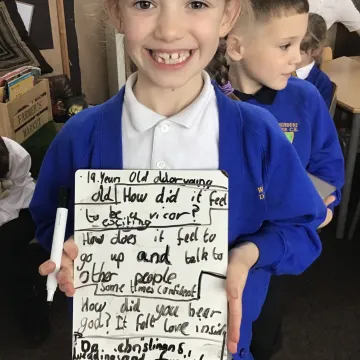 19 Years Old
old How did it feel
to be a vicor?
exciting
How does it feel to
go up and talk to
other people
Some times confident
How did you hear
god? It felt love inside
Do christings
weddings and